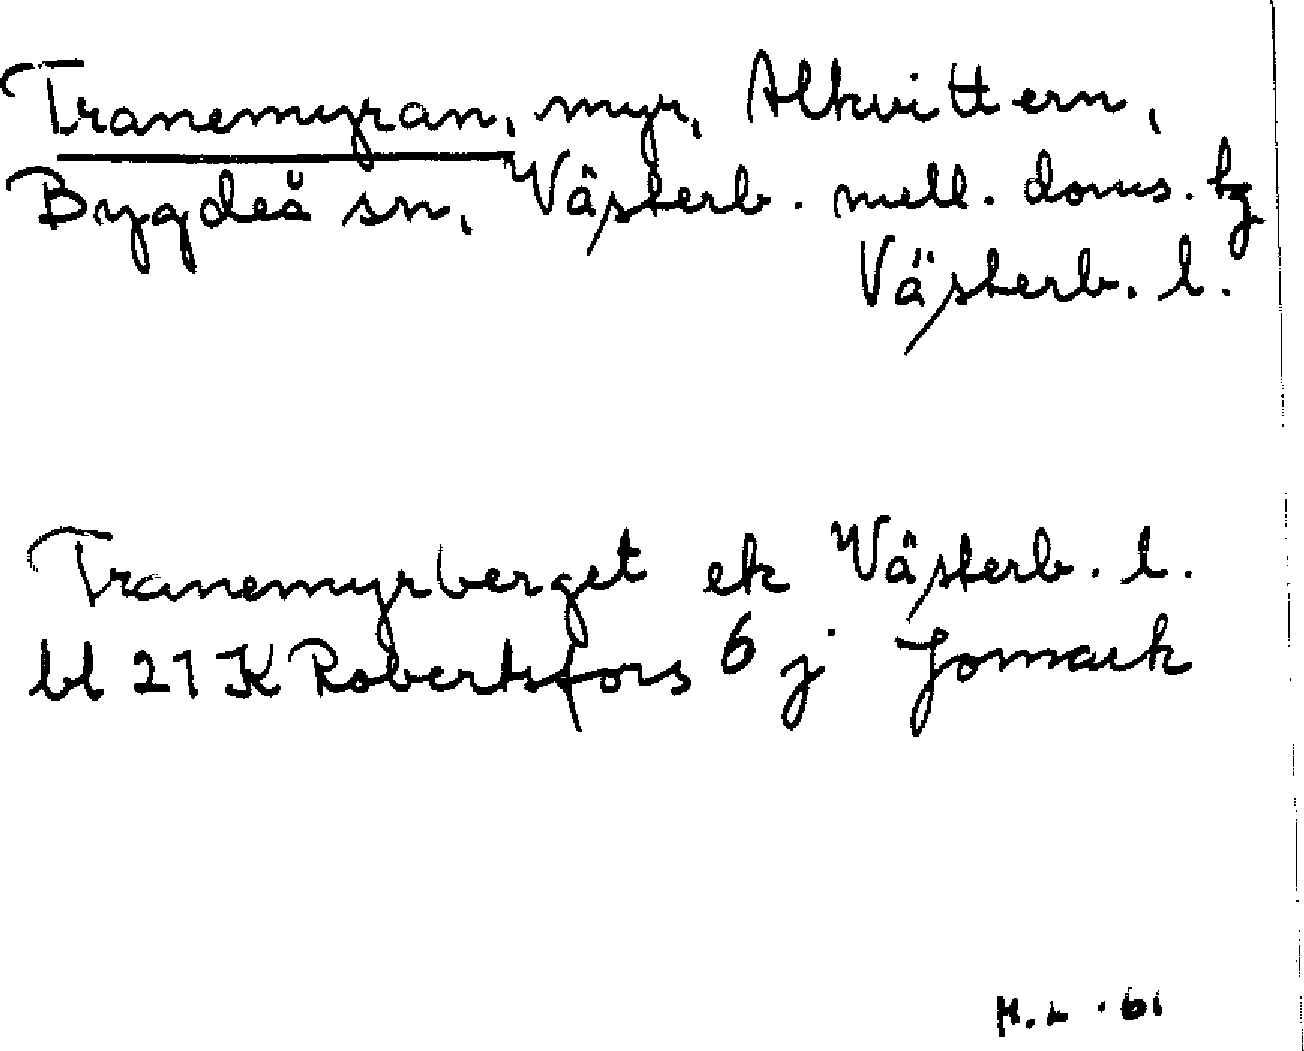 Tranemyran, myr, Altkvittern,
Bygdeå sn, Västerb. mell. doms. tg
Västerb. l.
Tranemyrberget ek Västerb. l.
bl 21 K Robertsfors 6 j Jomark